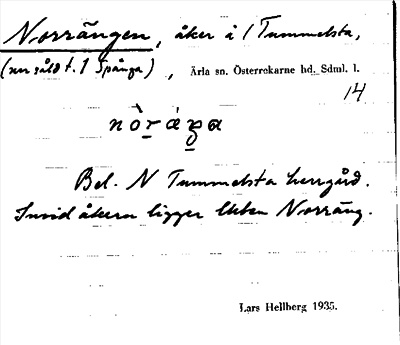 Norrängen, åker å 1 Tummelsta,
(nu såld t. 1 Spånga), Ärla sn. Österrekarne hd. Sdml. l.
14
nòráŋa
Bel. N Tummelsta herrgård.
Invid åkern ligger lkln Norräng.
Lars Hellberg 1935.